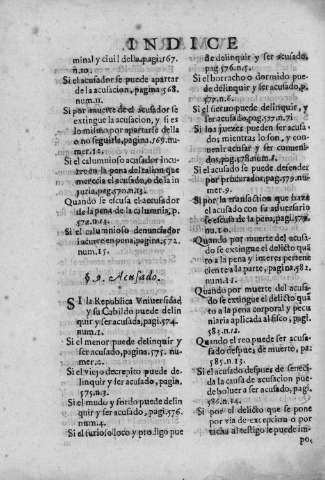 INDICE
minal y ciuil della, pagi. 567.
n. 10.
Si el acusador se puede apartar
de la acusacion, pagina 568.
num. 11.
Si por muerte del acusador se
extingue la acusacion, y si es
lo mismo por apartarse della
o no seguirla, pagina 569. nu-
mer. 12.
Si el calumnioso acusador incu-
rre en la pena del talion que
merecia el acusado, o de la in-
juria, pag. 570. n. 13.
Quando se escusa el acusador
de la pena de la calumnia, p.
572. n. 14.
Si el calumnioso denunciador
incurre en pena, pagina, 572.
num. 15.
§. 9. Acusado.
SI la Republica Vniuersidad
y su Cabildo puede delin
quir y ser acusada, pagi. 574.
num. 1.
Si el menor puede delinquir y
ser acusado, pagina 575. nu-
mer. 2.
Si el viejo decrepito puede de-
linquir y ser acusado, pagin.
575. n. 3.
Si el mudo y sordo puede delin
quir y ser acusado, pagi. 576.
num. 4.
Si el furioso, loco y prodigo pue
de delinquir y ser acusado,
pag. 576. n. 5.
Si el borracho o dormido pue-
de delinquir y ser acusado, p.
577. n. 6.
Si el sieruo puede delinquir, y
ser acusado, pog. 577. n. 7.
Si los juezes pueden ser acusa-
dos mientras lo son, y con-
uenir acusar y ser conueni-
dos, pog. 578 num. 8.
Si el acusado se puede defender
por procurador, pag. 579. nu-
mer. 9.
Si por la transaccion que haze
el acusado con su aduersario
se escusa de la pena, pagi. 579.
n. 10.
Quando por muerte del acusa-
do se extingue el delicto qua
to a la pena y interes pertene
ciente a la parte, pagina, 582.
num. 11.
Quando por muerte del acusa-
do se extingue el delicto quã
to a la pena corporal y pecu
niaria aplicada al fisco, pagi.
583. n. 12.
Quando el reo puede ser acusa-
do despues de muerto, pa-
585. n. 13.
El acusado despues de feneci-
da la causa de acusacion pue-
de boluer a ser acusado, pagi.
586. n. 14.
Si por el delicto que se pone
por via de excepcion o por
tacha al testigo le puede im-
po,